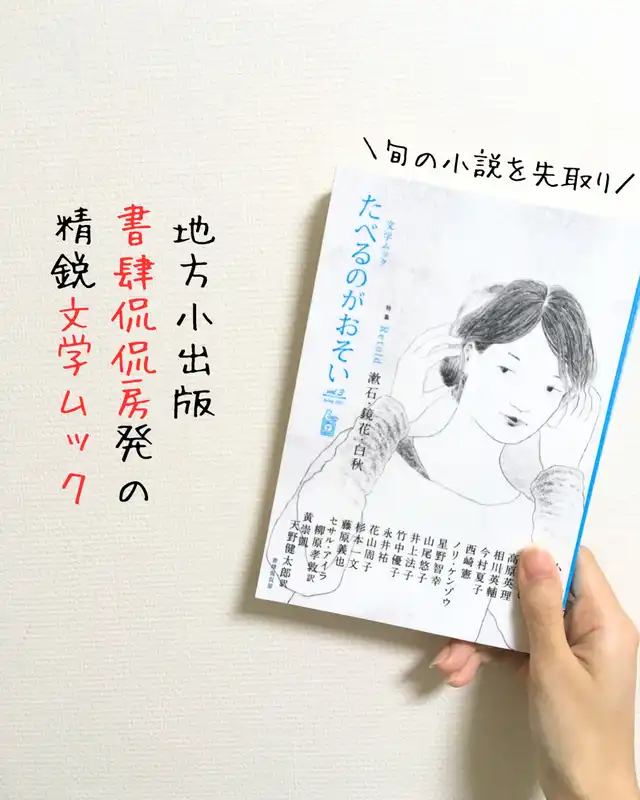 ＼旬の小説を先取り／
地方小出版
書肆侃侃房発の
精鋭文学ムック
文学ムック
たべるのがおそい
vol.3
特集
Retold
漱石・鏡花・白秋
高原英理
相川英輔
今村夏子
西崎憲
ノリ・ケンゾウ
星野智幸
山尾悠子
井上法子
竹中優子
永井祐
花山周子
杉本一文
藤原義也
セサル・アイラ
柳原孝敦訳
黄崇凱
天野健太郎訳
書肆侃侃房